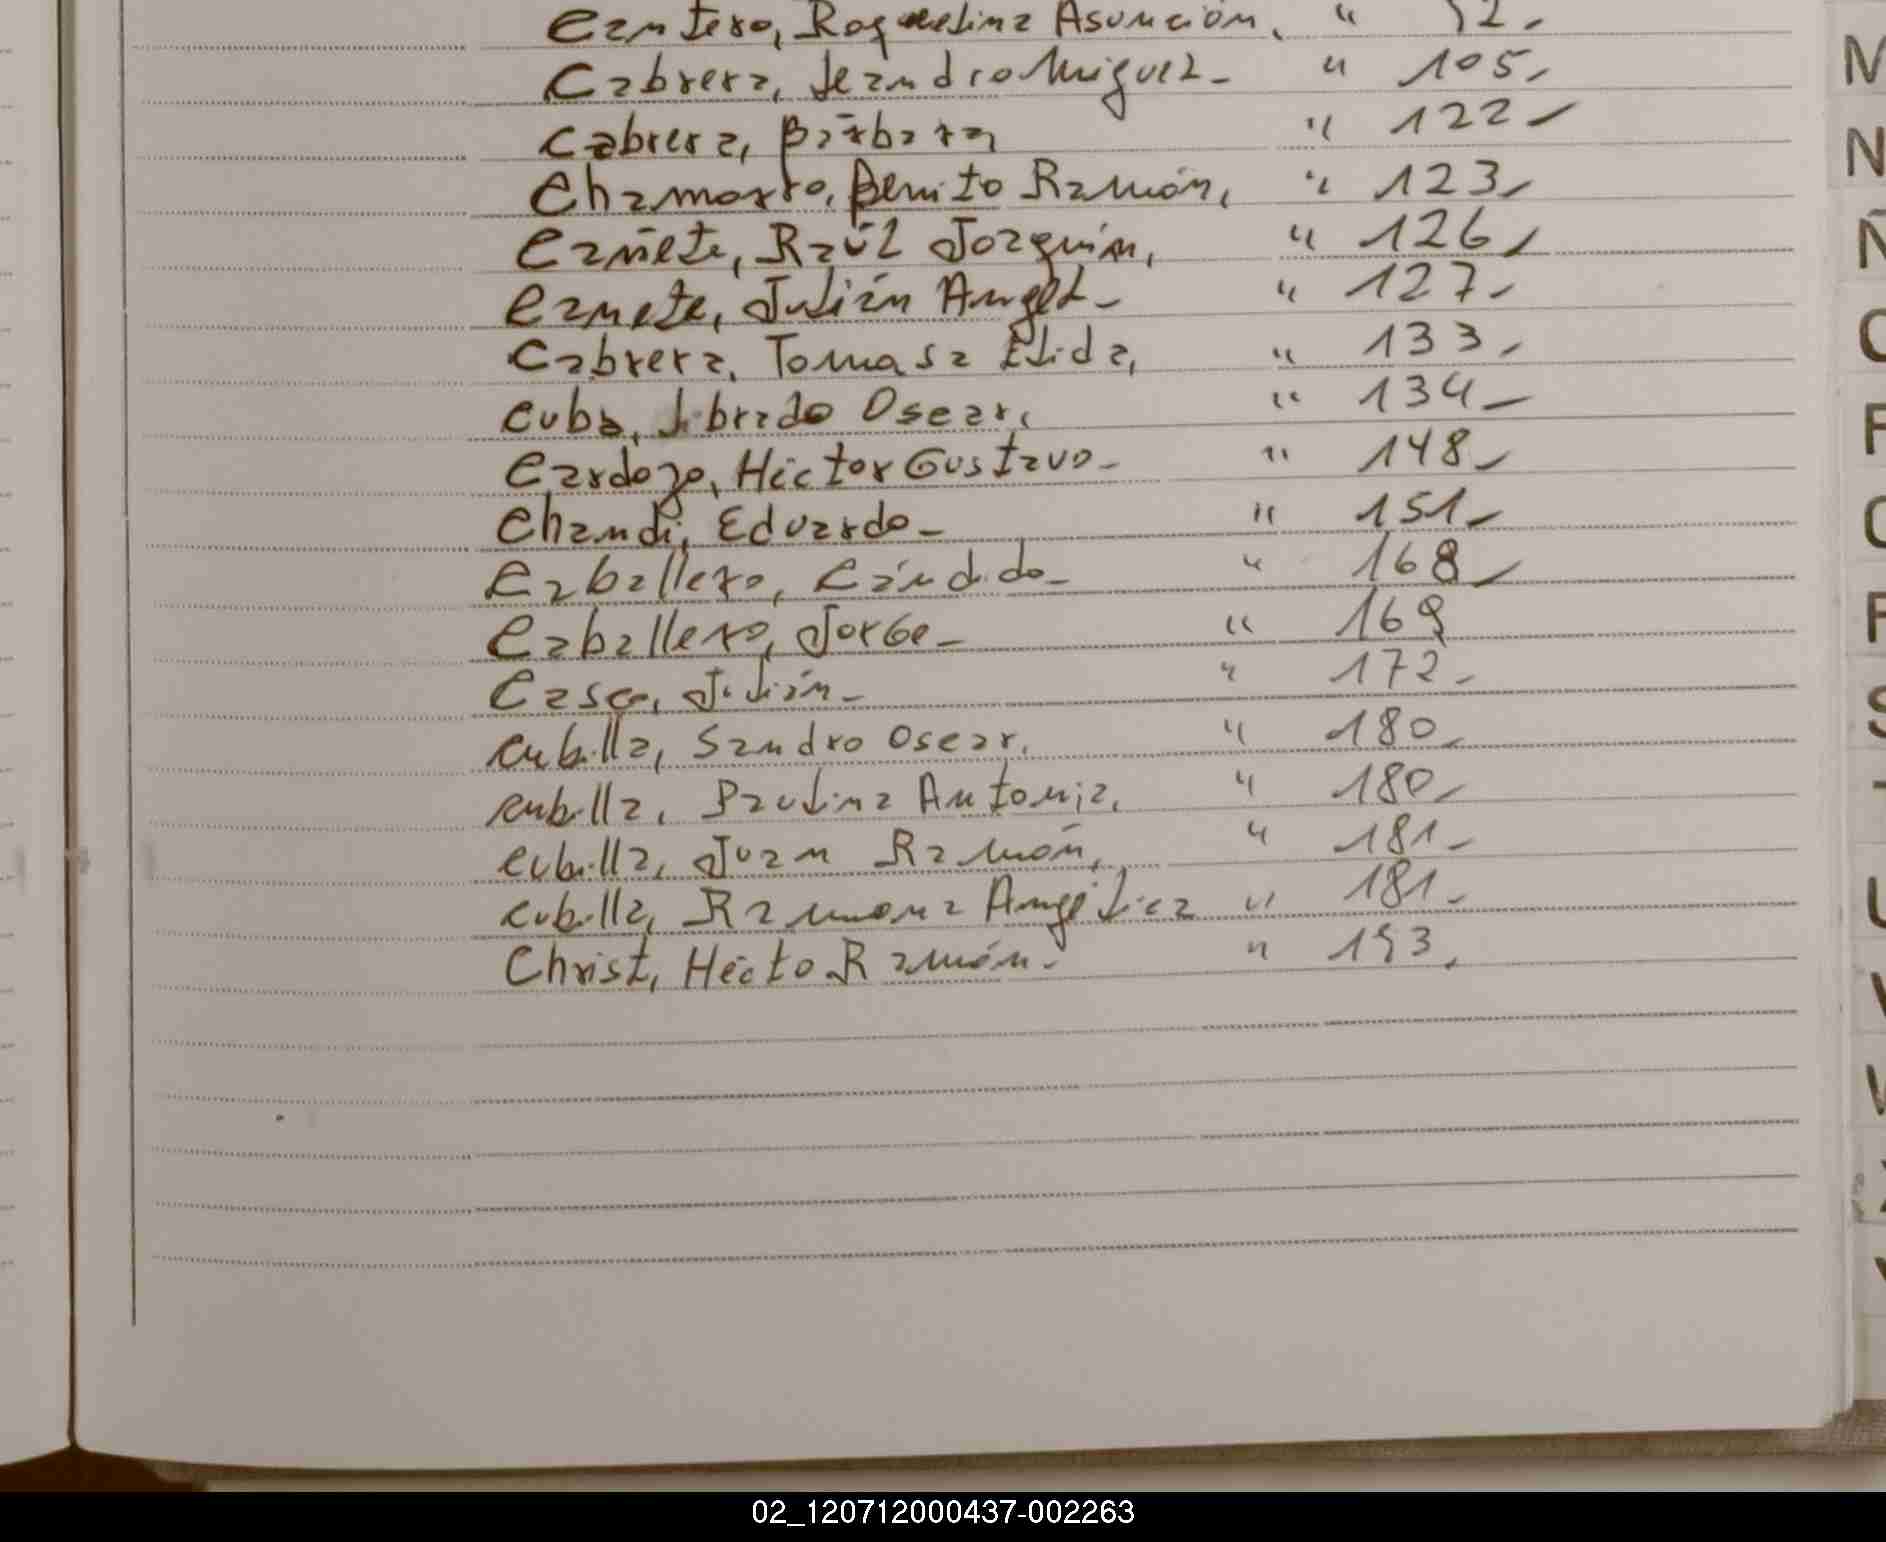 Cantero, Roquelina Asunción, "
Cabrera, Leandro Miguel- " 105,
Cabrera, Bárbara, " 122-
Chamorro, Benito Ramón, " 123,
Cañete, Raúl Joaquín, " 126,
Canete, Julián Angel- " 127-
Cabrera, Tomasa Elida, " 133,
Cuba, Librado Oscar, " 134-
Cardozo, Héctor Gustavo- " 148-
Chandi, Eduardo- " 151-
Caballero, Cándido- " 168-
Caballero, Jorge- " 169
Casco, Julián- " 172-
Cubilla, Sandro Oscar, " 180-
Cubilla, Paulina Antonia, " 180-
Cubilla, Juan Ramón, " 181-
Cubilla, Ramona Angélica " 181-
Christ, Hécto Ramón- " 193,
M
N
Ñ
O
P
Q
R
S
T
U
V
W
X
Y
02_120712000437-002263